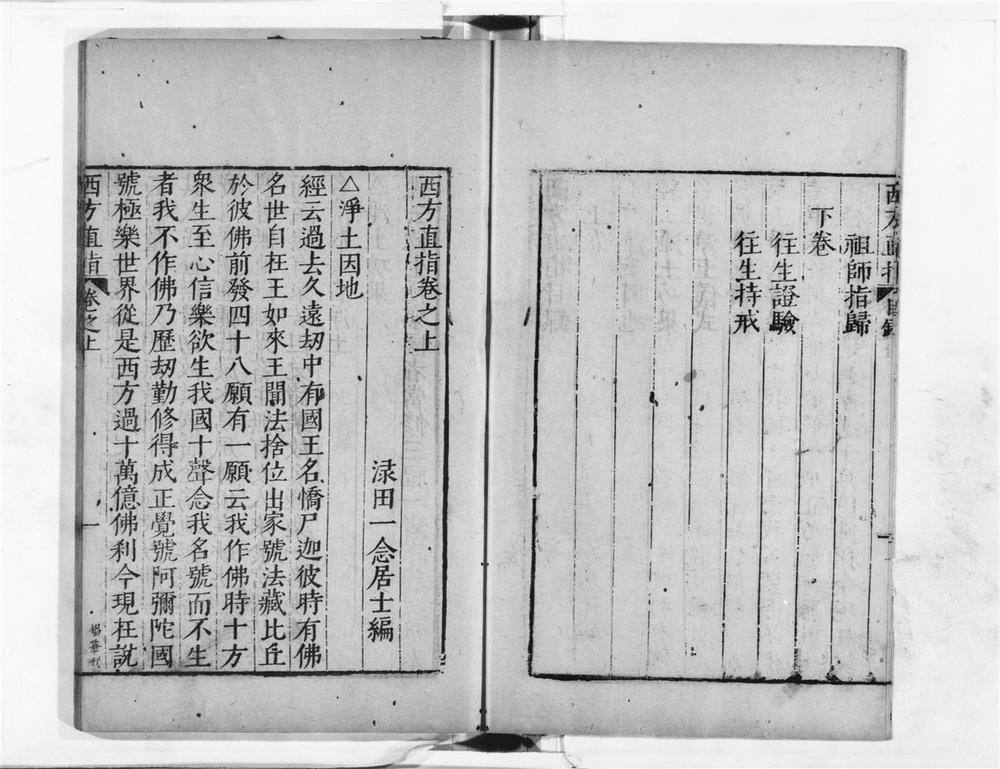 西方直指 目錄
祖師指歸
下卷
往生證驗
往生持戒
西方直指卷之上
淥田一念居士編
△淨土因地
經云過去久遠劫中有國王名憍尸迦彼時有佛
名世自在王如來王聞法捨位出家號法藏比丘
於彼佛前發四十八願有一願云我作佛時十方
衆生至心信樂欲生我國十聲念我名號而不生
者我不作佛乃歷劫勤修得成正覺號阿彌陀國
號極樂世界從是西方過十萬億佛刹今現在說
西方直指 卷之上 一
楊華刊